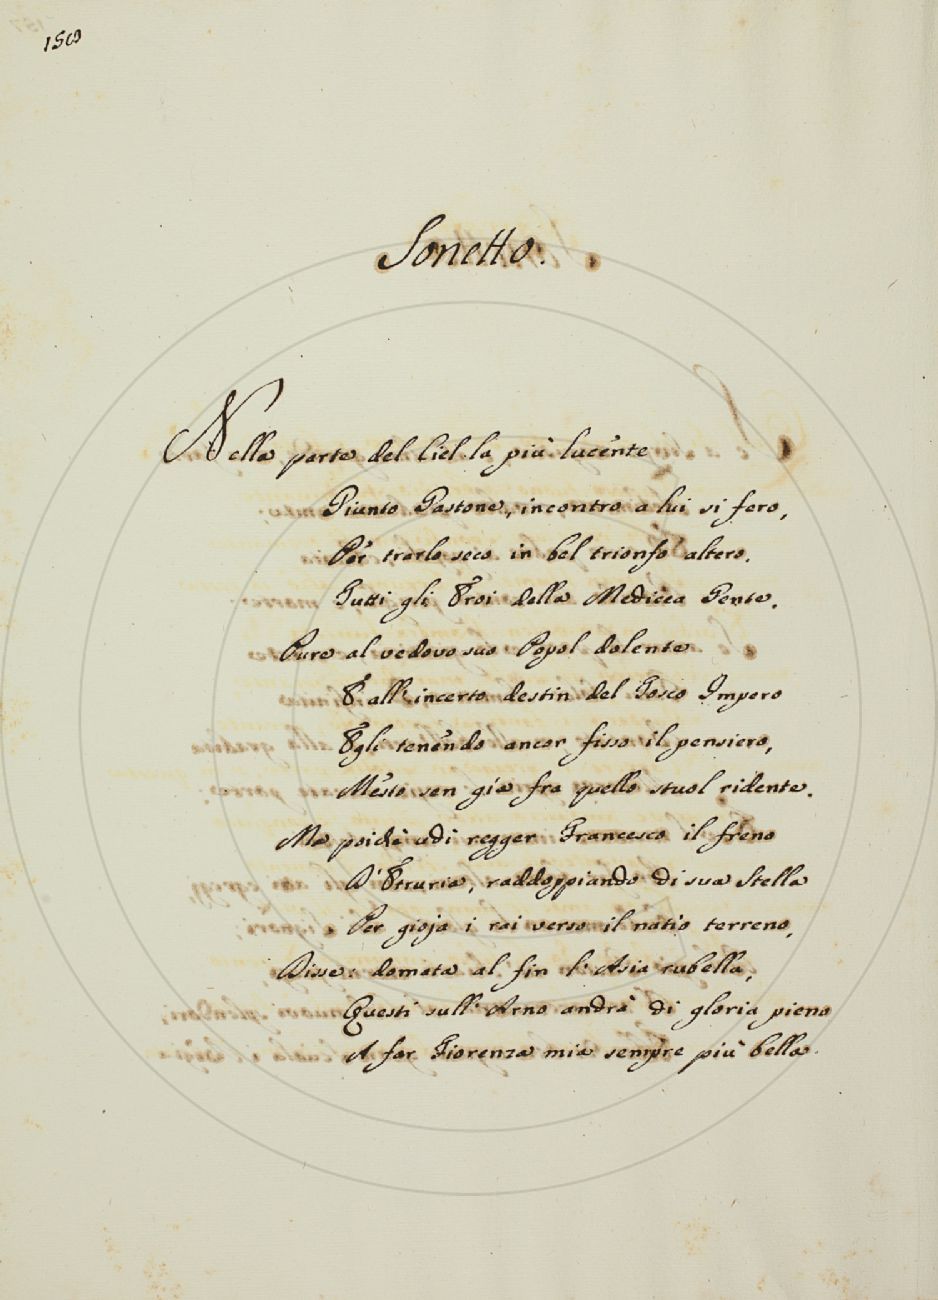 Sonetto.
Nella parte del Ciel la più lucente
Giunto Gastone, incontro a lui si fero,
Per trarlo seco in bel trionfo altero,
Tutti gli Eroi della Medicea Gente.
Pure al vedovo suo Popol dolente
E all' incerto destin del Tosco Impero
Egli tenendo ancor fisso il pensiero,
Mesto sen gia fra quello stuol ridente.
Ma poichè udì regger Francesco il freno
D' Etruria, raddoppiando di sua Stella
Per gioja i rai verso il natio terreno,
Disse: domata al fin l' Asia rubella,
Questi sull' Arno andrà di gloria pieno
A far Fiorenza mia sempre più bella.